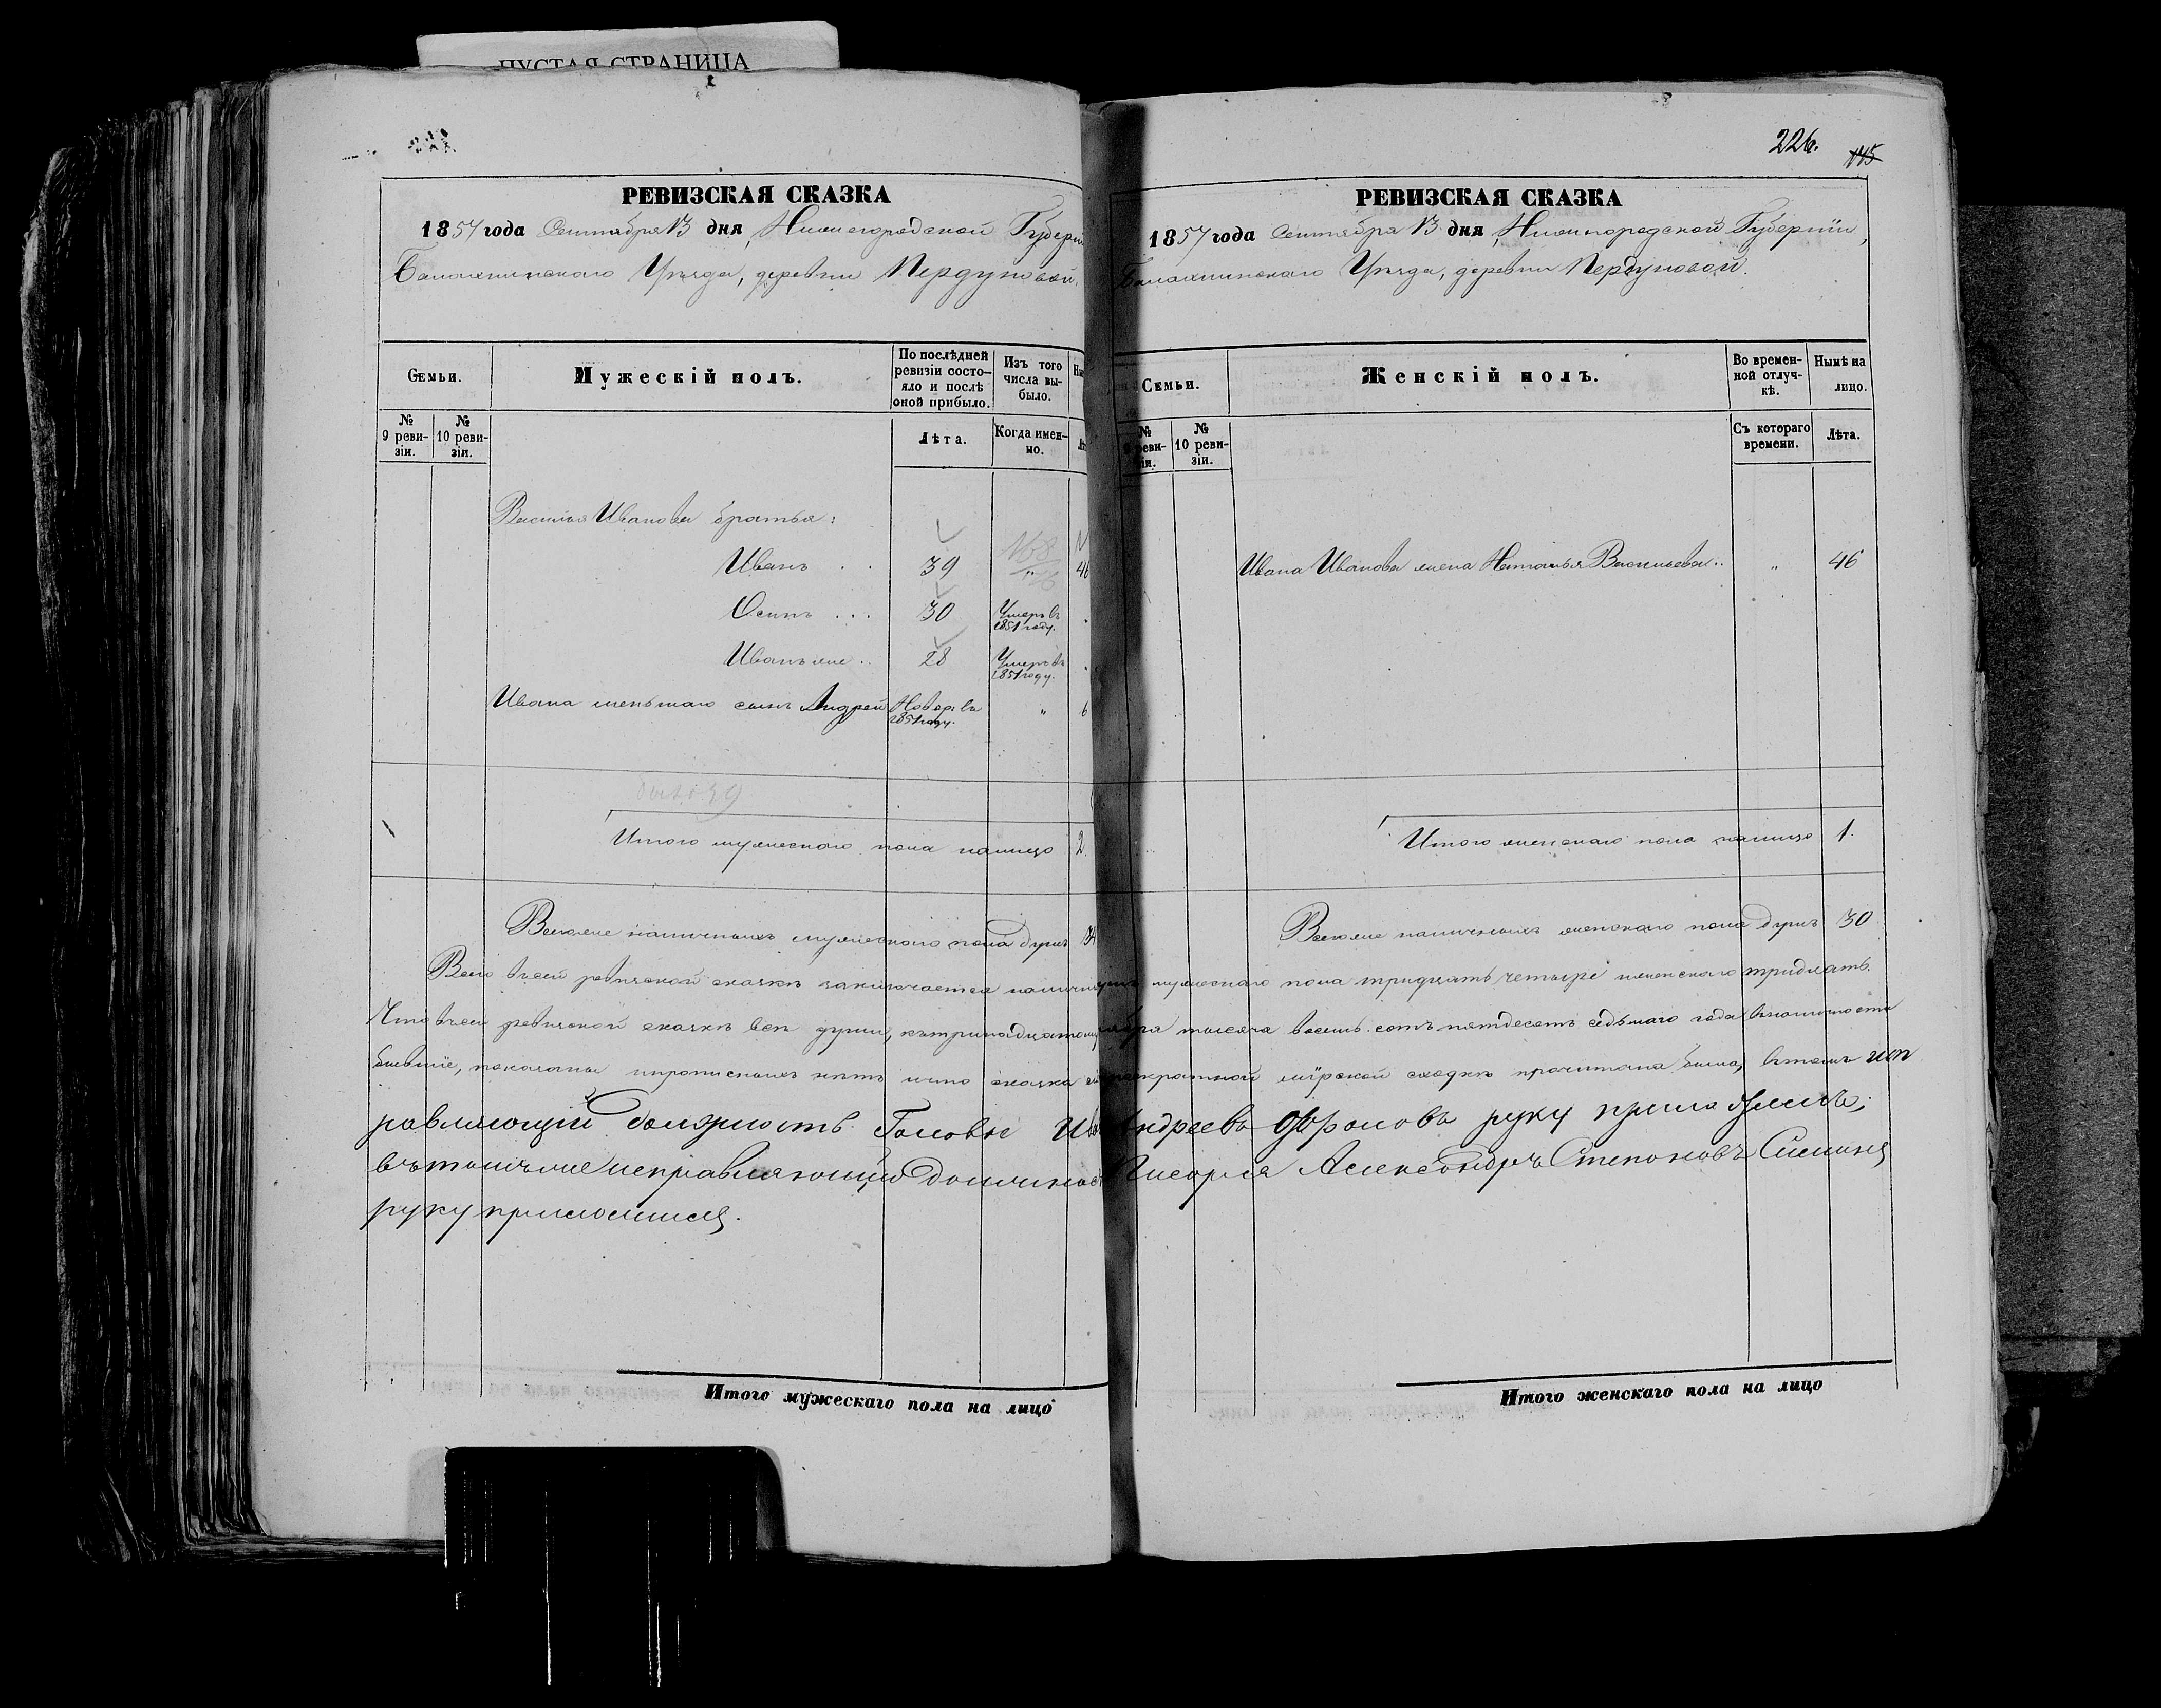 ПУСТАЯ СТРАНИЦА
РЕВИЗСКАЯ СКАЗКА
1857 года Сентября 13 дня, Нижегородской Губерніи
Балахнинскаго Уѣзда, деревни Пердуновой.
Семьи.
Мужескій полъ.
По послѣдней ревизіи состояло и послѣ оной прибыло.
Изъ того числа выбыло.
№ 9 ревизіи.
№ 10 ревизіи.
Лѣта.
Когда именно.
Василья Иванова братья:
Иванъ . . 39 "
Осипъ . . . 30 Умеръ въ 1851 году.
Иванъ же . . 28 Умеръ въ 1851 году.
Ивана меньшаго сынъ Андрей Новорж въ 1851 году. " 6
Итого мужескаго пола налицо 2.
Всего же наличныхъ мужескаго пола душъ 34
226.
115
РЕВИЗСКАЯ СКАЗКА
1857 года Сентября 13 дня, Нижегородской Губерніи,
Балахнинскаго Уѣзда, деревни Пердуновой.
Семьи.
Женскій полъ.
Во временной отлучкѣ.
Нынѣ на лицо.
№ 9 ревизіи.
№ 10 ревизіи.
Съ котораго времени.
Лѣта.
Ивана Иванова жена Наталья Васильева . . " 46
Итого женскаго пола налицо 1.
Всего же наличныхъ женскаго пола душъ 30
Всего въ сей ревизской сказкѣ заключается наличныхъ мужескаго пола тридцать четыре женскаго тридцать.
Что въ сей ревизской сказкѣ всѣ души, къ тринадцатому тысяча восемь сотъ пятдесятъ седьмаго года въ наличности
бывшіе, показаны и прописныхъ нѣтъ и что сказка мірской сходкѣ прочитана была, въ томъ исп
равляющій должность Головы Андреевъ Фроловъ руку приложилъ;
въ томъ же исправляющій должность Писаря Александръ Степановъ
руку приложилъ.
Итого мужескаго пола на лицо
Итого женскаго пола на лицо